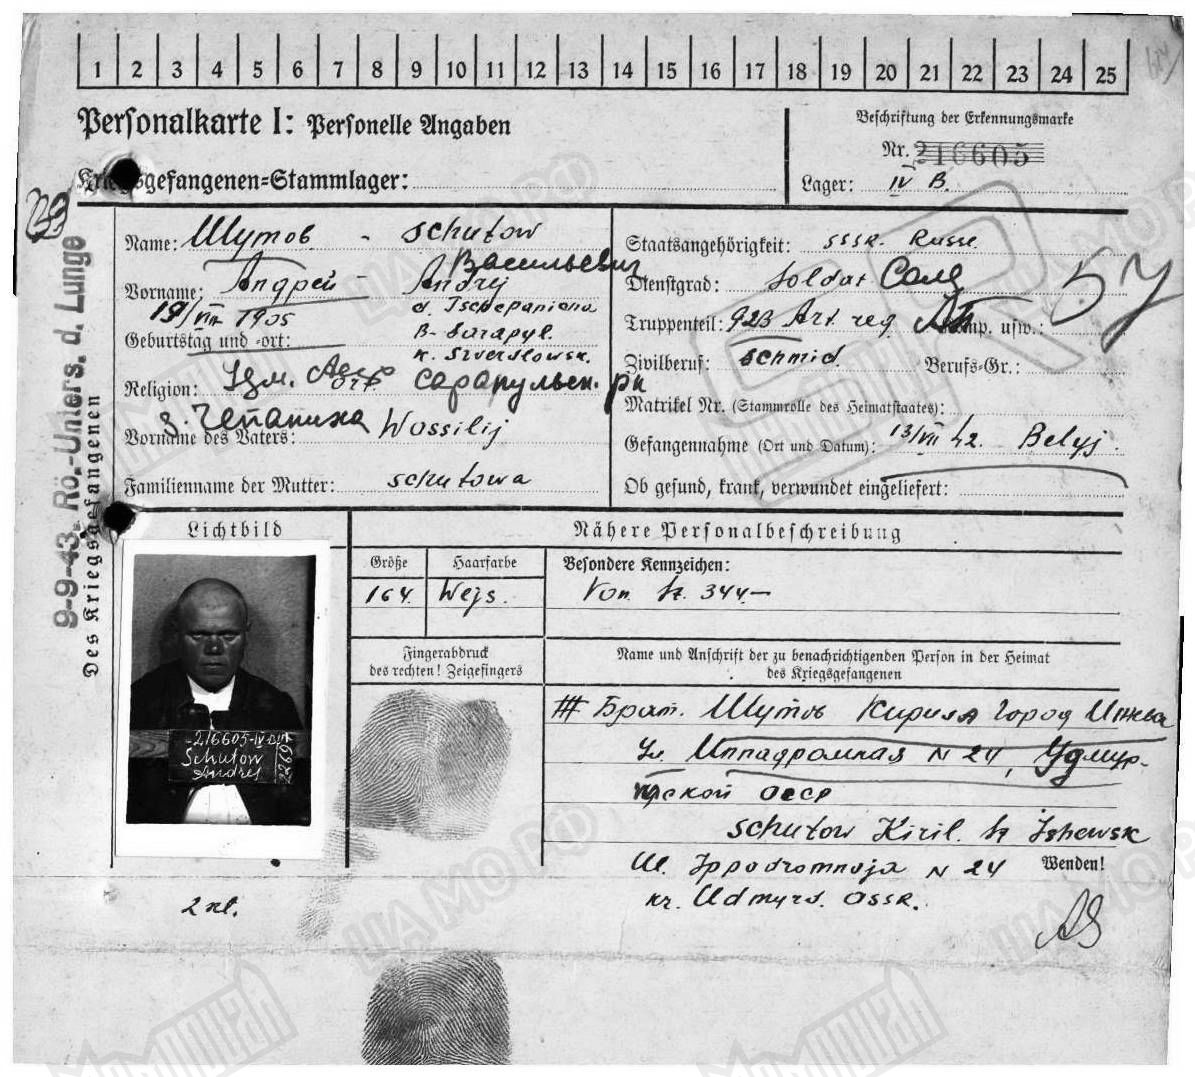 1 2 3 4 5 6 7 8 9 10 11 12 13 14 15 16 17 18 19 20 21 22 23 24 25
Personalkarte I: Personelle Angaben
Beschriftung der Erkennungsmarke
Nr. 216605
Kriegsgefangenen=Stammlager:
Lager: IV B.
Name: Шутов - Schutow
Васильевич
Vorname: Андрей - Andrej
19/VIII 1905 d. Tschepanicha
Geburtstag und -ort: B- Sarapyl.
K. Swerslowsk.
Religion: Удм. Ort. Сарапульск. рн
з. Чепаниха
Vorname des Vaters: Wossilij
Familienname der Mutter: Schutowa
Staatsangehörigkeit: SSSR. Russe.
Dienstgrad: Soldat Солд
Truppenteil: 923 Art. reg Komp. usw.:
57
Zivilberuf: Schmid. Berufs-Gr.:
Matrikel Nr. (Stammrolle des Heimatstaates):
Gefangennahme (Ort und Datum): 13/VII 42. Belyj.
Ob gesund, krank, verwundet eingeliefert:
9-9-43. Rö.-Unters. d. Lunge
Des Kriegsgefangenen
Lichtbild
Nähere Personalbeschreibung
Größe Haarfarbe Besondere Kennzeichen:
164. Wejs. Von St. 344-
Fingerabdruck
des rechten! Zeigefingers
Name und Anschrift der zu benachrichtigenden Person in der Heimat
des Kriegsgefangenen
Брат. Шутов Кирилл Город Ижевск
Ул. Ипподромная N 24, Удмур-
тской АССР
Schutow Kiril. St Ishewsk
Ul. Ippodromnaja N 24
Wenden!
kr. Udmurd. ASSR.
216605-IV B
Schutow
Andrej
2269
2 кл.
ЦАМО РФ